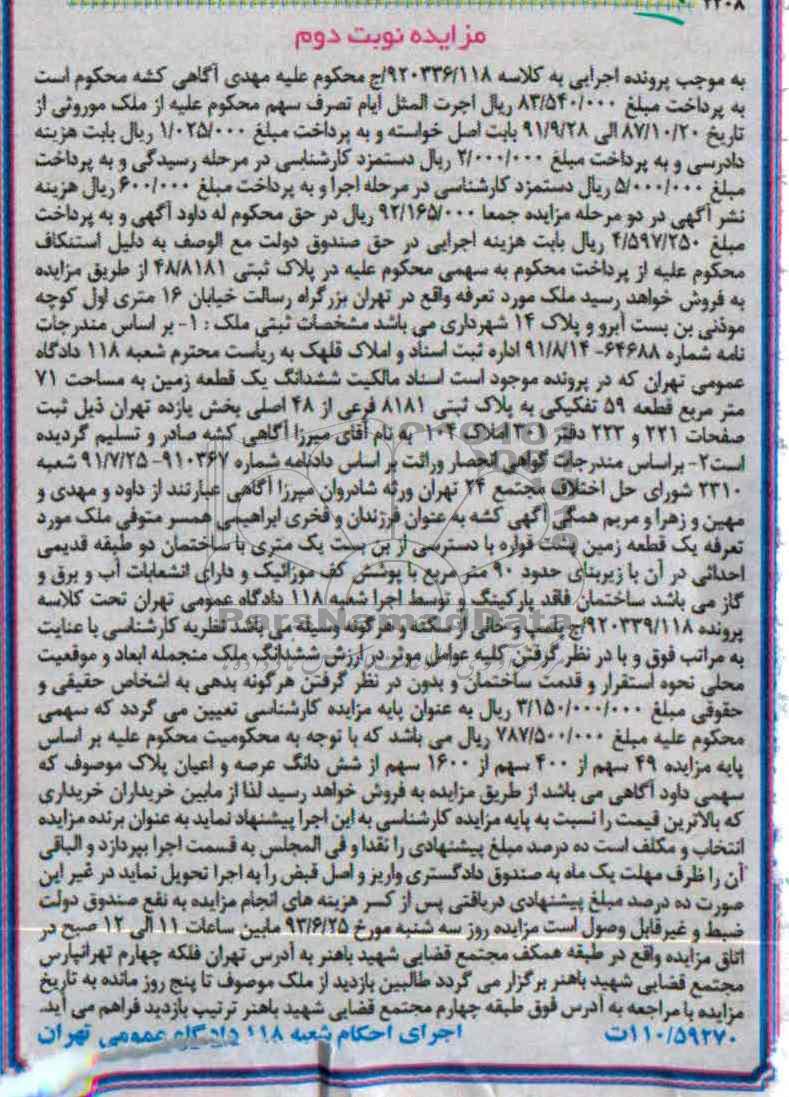 ۲۲۰۸
مزایده نوبت دوم
به موجب پرونده اجرایی به کلاسه ۹۲۰۳۳۶/۱۱۸/ج محکوم علیه مهدی آگاهی کشه محکوم است
به پرداخت مبلغ ۸۳/۵۴۰/۰۰۰ ریال اجرت المثل ایام تصرف سهم محکوم علیه از ملک موروثی از
تاریخ ۸۷/۱۰/۲۰ الی ۹۱/۹/۲۸ بابت اصل خواسته و به پرداخت مبلغ ۱/۰۲۵/۰۰۰ ریال بابت هزینه
دادرسی و به پرداخت مبلغ ۲/۰۰۰/۰۰۰ ریال دستمزد کارشناسی در مرحله رسیدگی و به پرداخت
مبلغ ۵/۰۰۰/۰۰۰ ریال دستمزد کارشناسی در مرحله اجرا و به پرداخت مبلغ ۶۰۰/۰۰۰ ریال هزینه
نشر آگهی در دو مرحله مزایده جمعا ۹۲/۱۶۵/۰۰۰ ریال در حق محکوم له داود آگهی و به پرداخت
مبلغ ۴/۵۹۷/۲۵۰ ریال بابت هزینه اجرایی در حق صندوق دولت مع الوصف به دلیل استنکاف
محکوم علیه از پرداخت محکوم به سهمی محکوم علیه در پلاک ثبتی ۴۸/۸۱۸۱ از طریق مزایده
به فروش خواهد رسید ملک مورد تعرفه واقع در تهران بزرگراه رسالت خیابان ۱۶ متری اول کوچه
موذنی بن بست آبرو و پلاک ۱۴ شهرداری می باشد مشخصات ثبتی ملک : ۱- بر اساس مندرجات
نامه شماره ۶۴۶۸۸- ۹۱/۸/۱۴ اداره ثبت اسناد و املاک قلهک به ریاست محترم شعبه ۱۱۸ دادگاه
عمومی تهران که در پرونده موجود است اسناد مالکیت ششدانگ یک قطعه زمین به مساحت ۷۱
متر مربع قطعه ۵۹ تفکیکی به پلاک ثبتی ۸۱۸۱ فرعی از ۴۸ اصلی بخش یازده تهران ذیل ثبت
صفحات ۲۲۱ و ۲۲۳ دفتر ۲۰۱ املاک ۱۰۴ به نام آقای میرزا آگاهی کشه صادر و تسلیم گردیده
است۲- براساس مندرجات گواهی انحصار وراثت بر اساس دادنامه شماره ۹۱۰۳۶۷- ۹۱/۷/۲۵ شعبه
۲۳۱۰ شورای حل اختلاف مجتمع ۲۴ تهران ورثه شادروان میرزا آگاهی عبارتند از داود و مهدی و
مهین و زهرا و مریم همگی آگهی کشه به عنوان فرزندان و فخری ابراهیمی همسر متوفی ملک مورد
تعرفه یک قطعه زمین پشت قواره با دسترسی از بن بست یک متری با ساختمان دو طبقه قدیمی
احداثی در آن با زیربنای حدود ۹۰ متر مربع با پوشش کف موزائیک و دارای انشعابات آب و برق و
گاز می باشد ساختمان فاقد پارکینگ و توسط اجرا شعبه ۱۱۸ دادگاه عمومی تهران تحت کلاسه
پرونده ۹۲۰۳۳۹/۱۱۸/ج پلمپ و خالی از سکنه و هرگونه وسیله می باشد نظریه کارشناسی با عنایت
به مراتب فوق و با در نظر گرفتن کلیه عوامل موثر در ارزش ششدانگ ملک منجمله ابعاد و موقعیت
محلی نحوه استقرار و قدمت ساختمان و بدون در نظر گرفتن هرگونه بدهی به اشخاص حقیقی و
حقوقی مبلغ ۳/۱۵۰/۰۰۰/۰۰۰ ریال به عنوان پایه مزایده کارشناسی تعیین می گردد که سهمی
محکوم علیه مبلغ ۷۸۷/۵۰۰/۰۰۰ ریال می باشد که با توجه به محکومیت محکوم علیه بر اساس
پایه مزایده ۴۹ سهم از ۴۰۰ سهم از ۱۶۰۰ سهم از شش دانگ عرصه و اعیان پلاک موصوف که
سهمی داود آگاهی می باشد از طریق مزایده به فروش خواهد رسید لذا از مابین خریداران خریداری
که بالاترین قیمت را نسبت به پایه مزایده کارشناسی به این اجرا پیشنهاد نماید به عنوان برنده مزایده
انتخاب و مکلف است ده درصد مبلغ پیشنهادی را نقدا و فی المجلس به قسمت اجرا بپردازد و الباقی
آن را ظرف مهلت یک ماه به صندوق دادگستری واریز و اصل قبض را به اجرا تحویل نماید در غیر این
صورت ده درصد مبلغ پیشنهادی دریافتی پس از کسر هزینه های انجام مزایده به نفع صندوق دولت
ضبط و غیرقابل وصول است مزایده روز سه شنبه مورخ ۹۳/۶/۲۵ مابین ساعات ۱۱ الی ۱۲ صبح در
اتاق مزایده واقع در طبقه همکف مجتمع قضایی شهید باهنر به آدرس تهران فلکه چهارم تهرانپارس
مجتمع قضایی شهید باهنر برگزار می گردد طالبین بازدید از ملک موصوف تا پنج روز مانده به تاریخ
مزایده با مراجعه به آدرس فوق طبقه چهارم مجتمع قضایی شهید باهنر ترتیب بازدید فراهم می آید.
۱۱۰/۵۹۲۷۰ت اجرای احکام شعبه ۱۱۸ دادگاه عمومی تهران
ParsNamadData